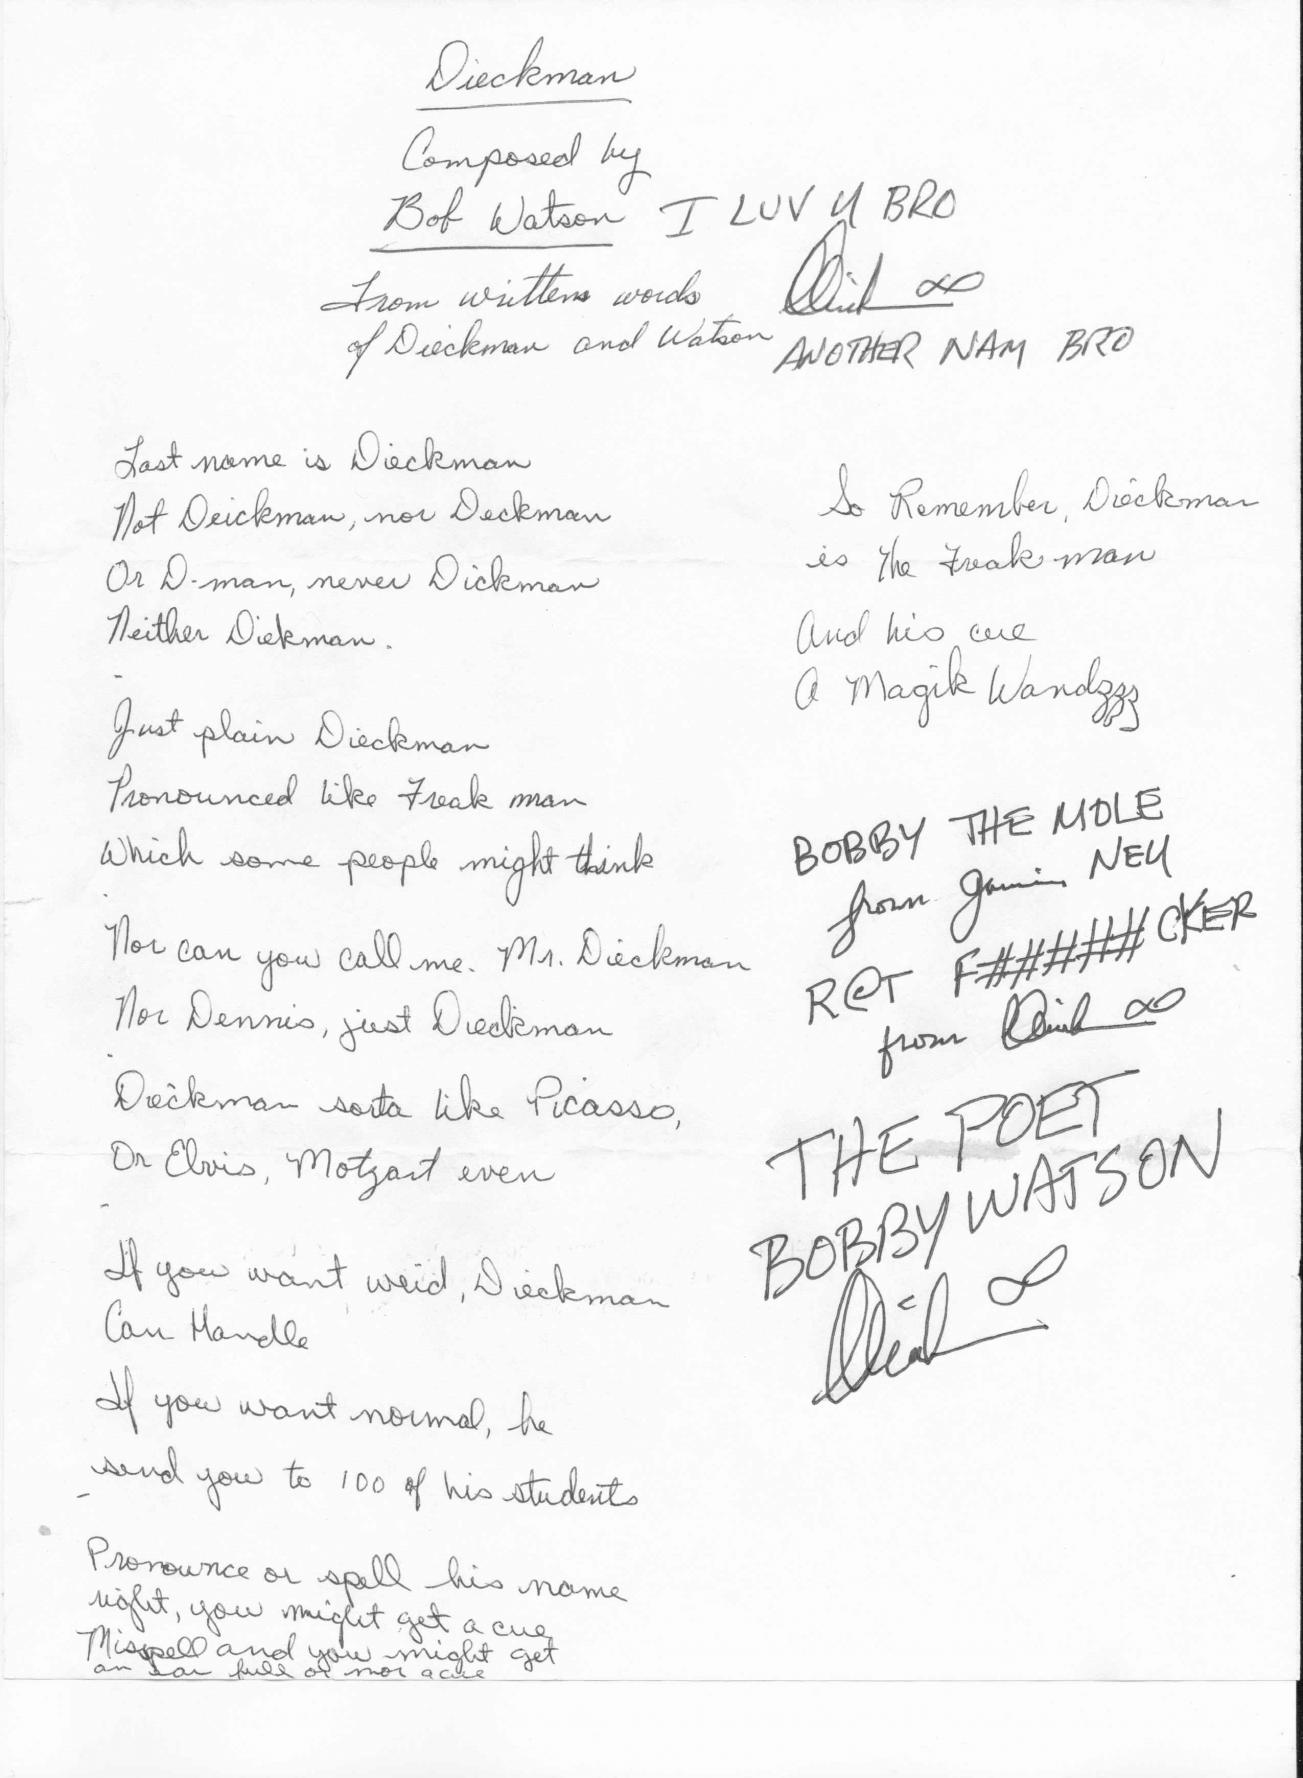 Dieckman
Composed by
Bob Watson
I LUV U BRO
From written words
of Dieckman and Watson
ANOTHER NAM BRO
Last name is Dieckman
Not Deickman, nor Deckman
Or D-man, never Dickman
Neither Diekman.
Just plain Dieckman
Pronounced like Freak man
Which some people might think
Nor can you call me. Mr. Dieckman
Nor Dennis, just Dieckman
Dieckman sorta like Picasso,
Or Elvis, Motzart even
If you want weid, Dieckman
Can Handle
If you want normal, he
send you to 100 of his students
Pronounce or spell his name
right, you might get a cue
Misspell and you might get
an ear full or mor a cue
So Remember, Dieckman
is the Freak man
And his cue
A Magik Wandzzz
BOBBY THE MOLE
from NEU
R@T F#####CKER
from
THE POET
BOBBY WATSON